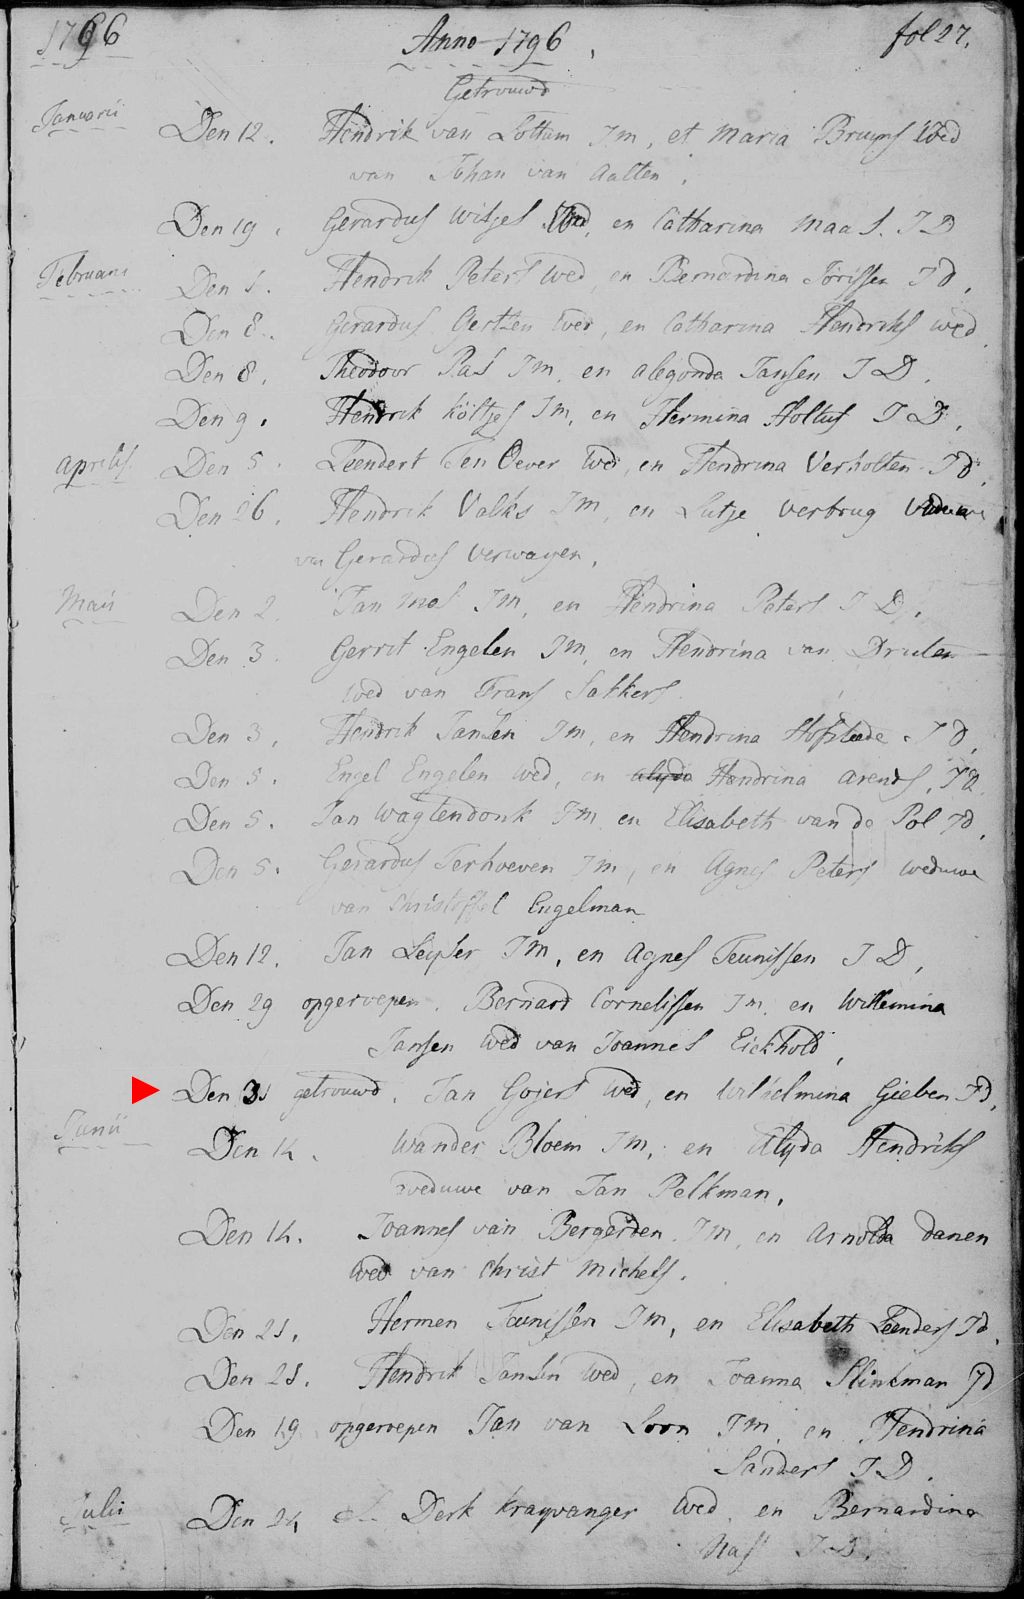 1796 Anno 1796 fol 27.
Getrouwd
Januarii Den 12. Hendrik van Lottum Jm, et Maria Bruyns Wed
van Johan van Aalten.
Den 19. Gerardus Witjes Wed, en Catharina Maas. J D
Februarii Den 1. Hendrik Peters Wed, en Bernardina Jorissen J d,
Den 8. Gerardus Oertzen Wed, en Catharina Hendriks wed
Den 8. Theodoor Pas Jm, en alegonda Jansen J D.
Den 9. Hendrik Költjes Jm, en Hermina Holtus J D,
aprilis Den 5. Leendert Ten Oever Wed, en Hendrina Verholten J d,
Den 26. Hendrik Valks Jm, en Lutje verbrug Weduwe
van Gerardus Verwayen,
Maii Den 2. Jan Mos Jm, en Hendrina Peters J D,
Den 3. Gerrit Engelen Jm, en Hendrina van Druten
Wed van Frans Sakkers
Den 3, Hendrik Jansen Jm, en Hendrina Hofstede J d,
Den 5. Engel Engelen Wed, en alyda Hendrina arends, J d.
Den 5. Jan Wagtendonk Jm en Elisabeth van de Pol J d,
Den 5. Gerardus Terhoeven Jm, en Agnes Peters weduwe
van Christoffel Engelman
Den 12. Jan Leyser Jm, en Agnes Teunissen J D,
Den 29 opgeroepen. Bernard Cornelissen Jm, en Willemina
Jansen Wed van Joannes Eickhold,
Den 31 getrouwd. Jan Gojers Wed, en Wilhelmina Gieben J d,
Junii Den 14. Wander Bloem Jm, en Alyda Hendriks
weduwe van Jan Pelkman,
Den 14. Joannes van Bergerden Jm, en Arnolda Danen
Wed van Christ Michels.
Den 21, Hermen Teunissen Jm, en Elisabeth Leenders J d,
Den 21. Hendrik Jansen Wed, en Joanna Slinkman J d
Den 19 opgeroepen Jan van Loon Jm, en Hendrina
Sanders J D.
Julii Den 24 Derk Krayvanger Wed, en Bernardina
Nass J D.